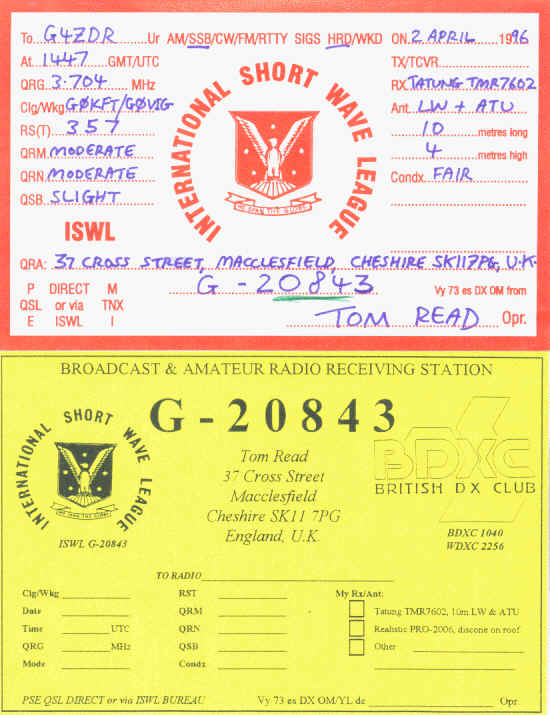 To G4ZDR Ur AM/SSB/CW/FM/RTTY SIGS HRD/WKD ON 2 APRIL 1996
At 1447 GMT/UTC TX/TCVR
QRG 3·704 MHz RX TATUNG TMR7602
Clg/Wkg GØKFT/GØVIG Ant. LW + ATU
RS(T) 357 10 metres long
QRM MODERATE 4 metres high
QRN MODERATE Condx. FAIR
QSB SLIGHT
INTERNATIONAL SHORT WAVE LEAGUE
WE SPAN THE GLOBE
ISWL
QRA: 37 CROSS STREET, MACCLESFIELD, CHESHIRE SK117PG, U.K.
G - 20843
P DIRECT M Vy 73 es DX OM from
QSL or via TNX
E ISWL I TOM READ Opr.
BROADCAST & AMATEUR RADIO RECEIVING STATION
G-20843
INTERNATIONAL SHORT WAVE LEAGUE
WE SPAN THE GLOBE
ISWL G-20843
Tom Read
37 Cross Street
Macclesfield
Cheshire SK11 7PG
England, U.K.
BDXC
BRITISH DX CLUB
BDXC 1040
WDXC 2256
TO RADIO
Clg/Wkg RST My Rx/Ant:
Date QRM Tatung TMR7602, 10m LW & ATU
Time UTC QRN Realistic PRO-2006, discone on roof
QRG MHz QSB Other
Mode Condx
PSE QSL DIRECT or via ISWL BUREAU Vy 73 es DX OM/YL de Opr.